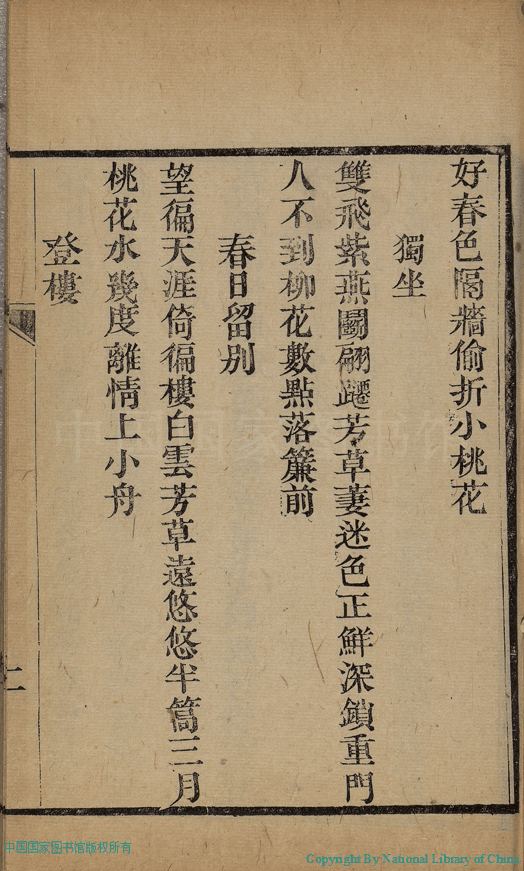 好春色隔牆偷折小桃花
獨坐
雙飛紫燕鬭翩躚芳草萋迷色正鮮深鎖重門
人不到柳花數點落簾前
春日留别
望徧天涯倚徧樓白雲芳草遠悠悠半篙三月
桃花水幾度離情上小舟
登樓
二
中国国家图书馆版权所有
Copyright By National Library of China